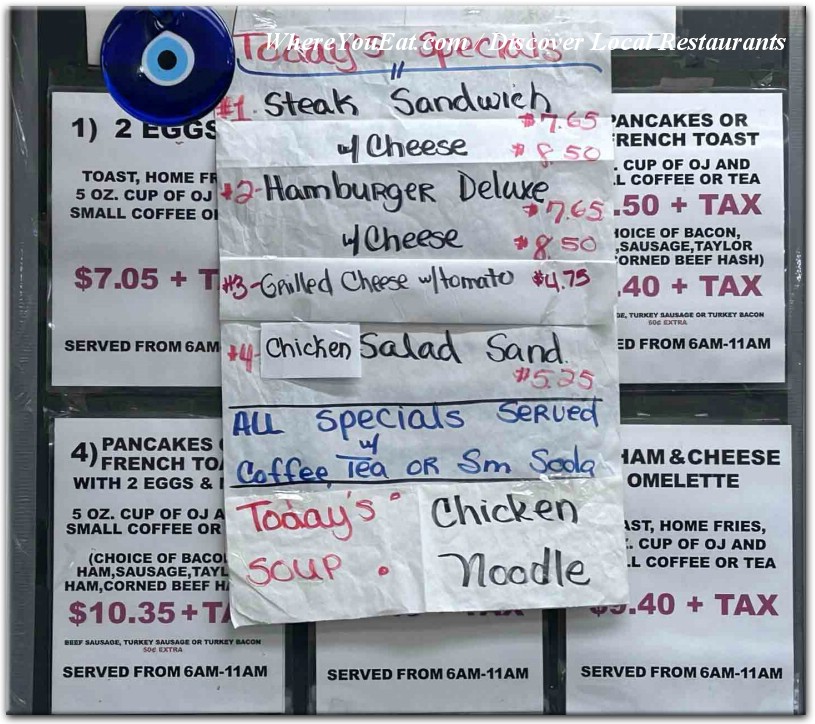 WhereYouEat.com / Discover Local Restaurants
Today's Specials
#1. Steak Sandwich
$7.65
w/ Cheese $8.50
#2-Hamburger Deluxe
$7.65
w/ Cheese $8.50
#3-Grilled Cheese w/tomato $4.75
#4- Chicken Salad Sand.
$5.25
ALL specials served
w/
Coffee, Tea OR Sm Soda
Today's Soup : Chicken Noodle
1) 2 EGGS
TOAST, HOME
5 OZ. CUP OF OJ
SMALL COFFEE
$7.05 +
SERVED FROM 6AM-
PANCAKES OR
FRENCH TOAST
CUP OF OJ AND
COFFEE OR TEA
.50 + TAX
OF BACON,
,SAUSAGE,TAYLOR
CORNED BEEF HASH)
.40 + TAX
TURKEY SAUSAGE OR TURKEY BACON
50¢ EXTRA
FROM 6AM-11AM
4) PANCAKES
FRENCH
WITH 2 EGGS &
5 OZ. CUP OF OJ
SMALL COFFEE OR
(CHOICE OF
HAM,SAUSAGE,
HAM,CORNED BEEF
$10.35+
BEEF SAUSAGE, TURKEY SAUSAGE OR TURKEY BACON
50¢ EXTRA
SERVED FROM 6AM-11AM
SERVED FROM 6AM-11AM
HAM & CHEESE
OMELETTE
HOME FRIES,
CUP OF OJ AND
COFFEE OR TEA
.40 + TAX
SERVED FROM 6AM-11AM